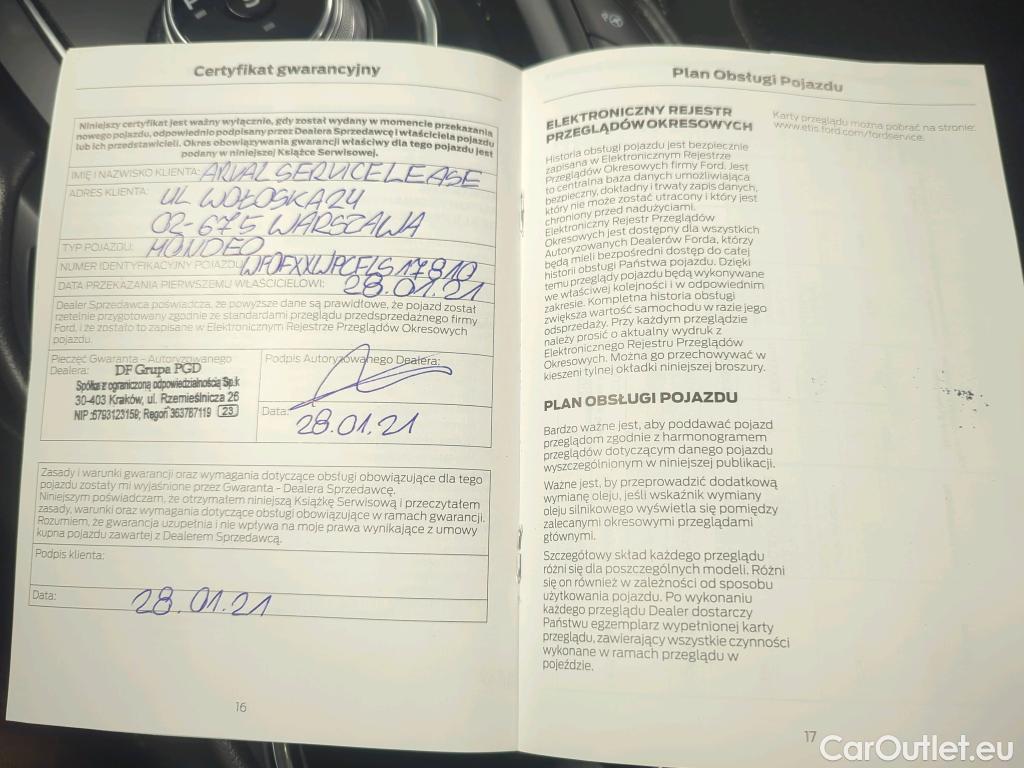 Certyfikat gwarancyjny
Niniejszy certyfikat jest ważny wyłącznie, gdy został wydany w momencie przekazania
nowego pojazdu, odpowiednio podpisany przez Dealera Sprzedawcę i właściciela pojazdu
lub ich przedstawicieli. Okres obowiązywania gwarancji właściwy dla tego pojazdu jest
podany w niniejszej Książce Serwisowej.
IMIĘ I NAZWISKO KLIENTA: ARVAL SERVICE LEASE
ADRES KLIENTA: UL WOŁOSKA 24
02-675 WARSZAWA
TYP POJAZDU: MONDEO
NUMER IDENTYFIKACYJNY POJAZDU WF0FXXWPCFLG17810
DATA PRZEKAZANIA PIERWSZEMU WŁAŚCICIELOWI: 28.01.21
Dealer Sprzedawca poświadcza, że powyższe dane są prawidłowe, że pojazd został
rzetelnie przygotowany zgodnie ze standardami przeglądu przedsprzedażnego firmy
Ford, i że zostało to zapisane w Elektronicznym Rejestrze Przeglądów Okresowych
pojazdu.
Pieczęć Gwaranta – Autoryzowanego
Dealera:
DF Grupa PGD
Spółka z ograniczoną odpowiedzialnością Sp.k
30-403 Kraków, ul. Rzemieślnicza 26
NIP :6793123159; Regon 363787119 23
Podpis Autoryzowanego Dealera:
Data: 28.01.21
Zasady i warunki gwarancji oraz wymagania dotyczące obsługi obowiązujące dla tego
pojazdu zostały mi wyjaśnione przez Gwaranta – Dealera Sprzedawcę.
Niniejszym poświadczam, że otrzymałem niniejszą Książkę Serwisową i przeczytałem
zasady, warunki oraz wymagania dotyczące obsługi obowiązujące w ramach gwarancji.
Rozumiem, że gwarancja uzupełnia i nie wpływa na moje prawa wynikające z umowy
kupna pojazdu zawartej z Dealerem Sprzedawcą.
Podpis klienta:
Data: 28.01.21
16
Plan Obsługi Pojazdu
ELEKTRONICZNY REJESTR
PRZEGLĄDÓW OKRESOWYCH
Historia obsługi pojazdu jest bezpiecznie
zapisana w Elektronicznym Rejestrze
Przeglądów Okresowych firmy Ford. Jest
to centralna baza danych umożliwiająca
bezpieczny, dokładny i trwały zapis danych,
który nie może zostać utracony i który jest
chroniony przed nadużyciami.
Elektroniczny Rejestr Przeglądów
Okresowych jest dostępny dla wszystkich
Autoryzowanych Dealerów Forda, którzy
będą mieli bezpośredni dostęp do całej
historii obsługi Państwa pojazdu. Dzięki
temu przeglądy pojazdu będą wykonywane
we właściwej kolejności i w odpowiednim
zakresie. Kompletna historia obsługi
zwiększa wartość samochodu w razie jego
odsprzedaży. Przy każdym przeglądzie
należy prosić o aktualny wydruk z
Elektronicznego Rejestru Przeglądów
Okresowych. Można go przechowywać w
kieszeni tylnej okładki niniejszej broszury.
PLAN OBSŁUGI POJAZDU
Bardzo ważne jest, aby poddawać pojazd
przeglądom zgodnie z harmonogramem
przeglądów dotyczącym danego pojazdu
wyszczególnionym w niniejszej publikacji.
Ważne jest, by przeprowadzić dodatkową
wymianę oleju, jeśli wskaźnik wymiany
oleju silnikowego wyświetla się pomiędzy
zalecanymi okresowymi przeglądami
głównymi.
Szczegółowy skład każdego przeglądu
różni się dla poszczególnych modeli. Różni
się on również w zależności od sposobu
użytkowania pojazdu. Po wykonaniu
każdego przeglądu Dealer dostarczy
Państwu egzemplarz wypełnionej karty
przeglądu, zawierający wszystkie czynności
wykonane w ramach przeglądu w
pojeździe.
Karty przeglądu można pobrać na stronie:
www.etis.ford.com/fordservice.
17
CarOutlet.eu